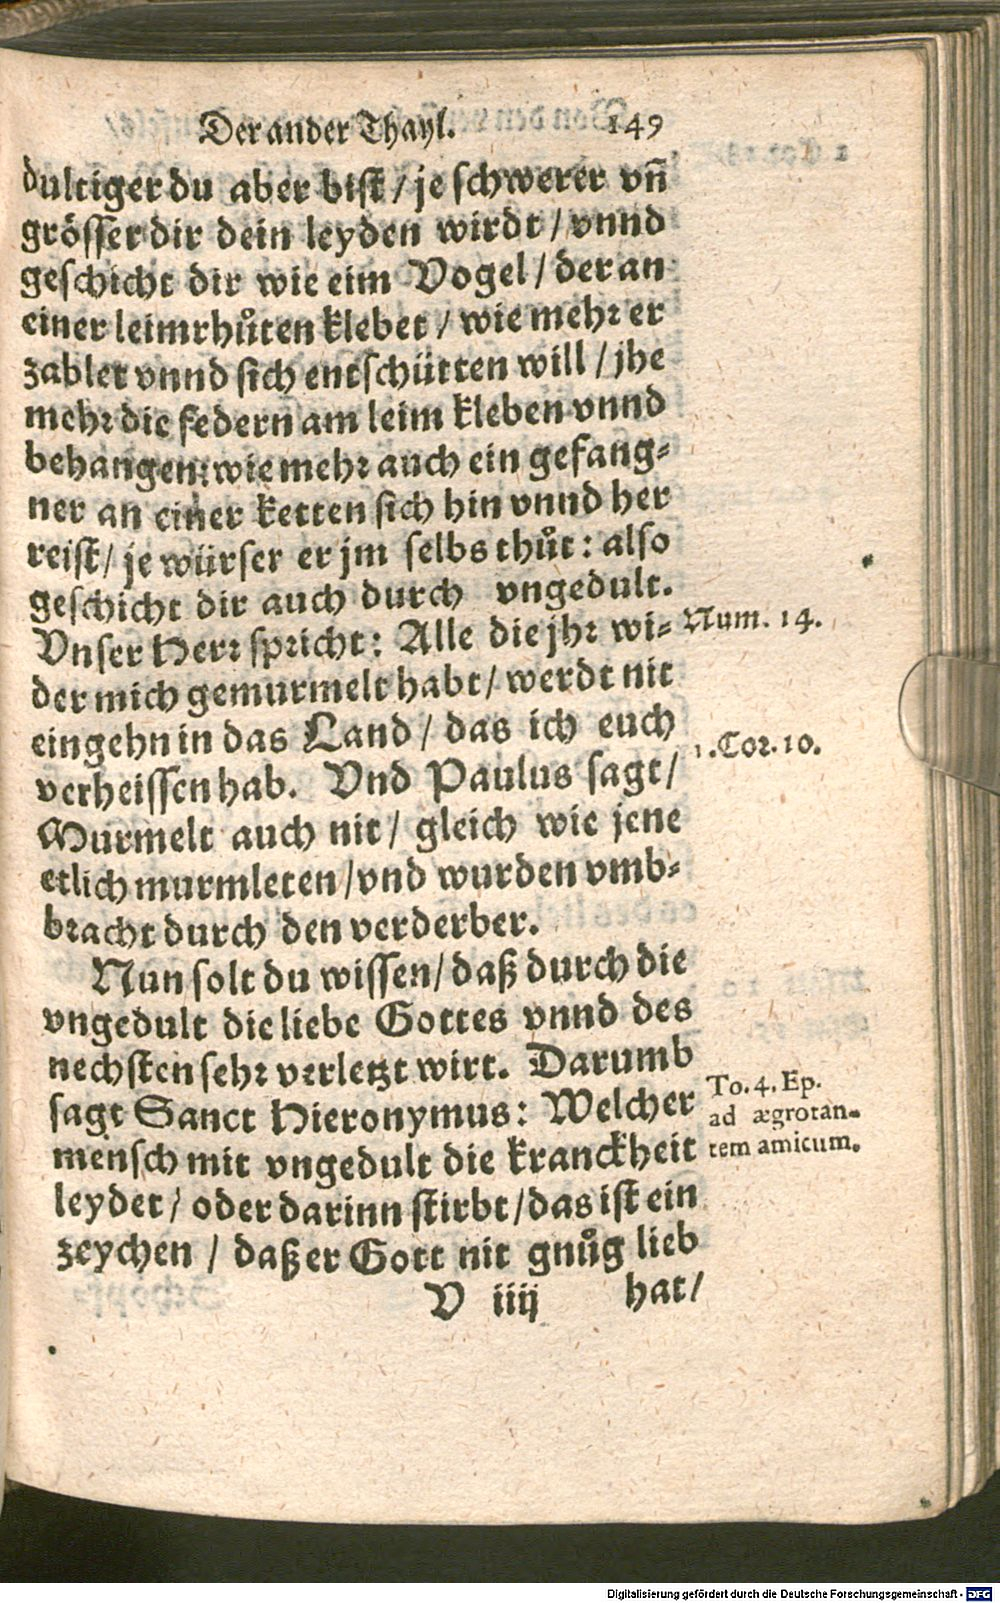 Der ander Thayl. 149
dultiger du aber bist / je schwerer vnn̄
grösser dir dein leyden wirdt / vnnd
geschicht dir wie eim Vogel / der an
einer leimrhůten klebet / wie mehr er
zablet vnnd sich entschütten will / jhe
mehr die federn am leim kleben vnnd
behangen: wie mehr auch ein gefang⸗
ner an einer ketten sich hin vnnd her
reist / je würser er jm selbs thůt: also
geschicht dir auch durch vngedult.
Vnser Herr spricht: Alle die jhr wi⸗
Num. 14.
der mich gemurmelt habt / werdt nit
eingehn in das Land / das ich euch
verheissen hab. Vnd Paulus sagt /
1. Cor. 10.
Murmelt auch nit / gleich wie jene
etlich murmleten / vnd wurden vmb⸗
bracht durch den verderber.
Nun solt du wissen / daß durch die
vngedult die liebe Gottes vnnd des
nechsten sehr verletzt wirt. Darumb
sagt Sanct Hieronymus: Welcher
mensch mit vngedult die kranckheit
To. 4. Ep.
ad ægrotan-
tem amicum.
leydet / oder darinn stirbt / das ist ein
zeychen / daß er Gott nit gnůg lieb
V iiij hat /
Digitalisierung gefördert durch die Deutsche Forschungsgemeinschaft - DFG